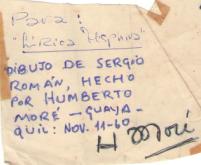 Para:
"Lírica Hispana"
DIBUJO DE SERGIO
ROMÁN, HECHO
POR HUMBERTO
MORÉ - GUAYA-
QUIL: NOV. 11-60
H Moré